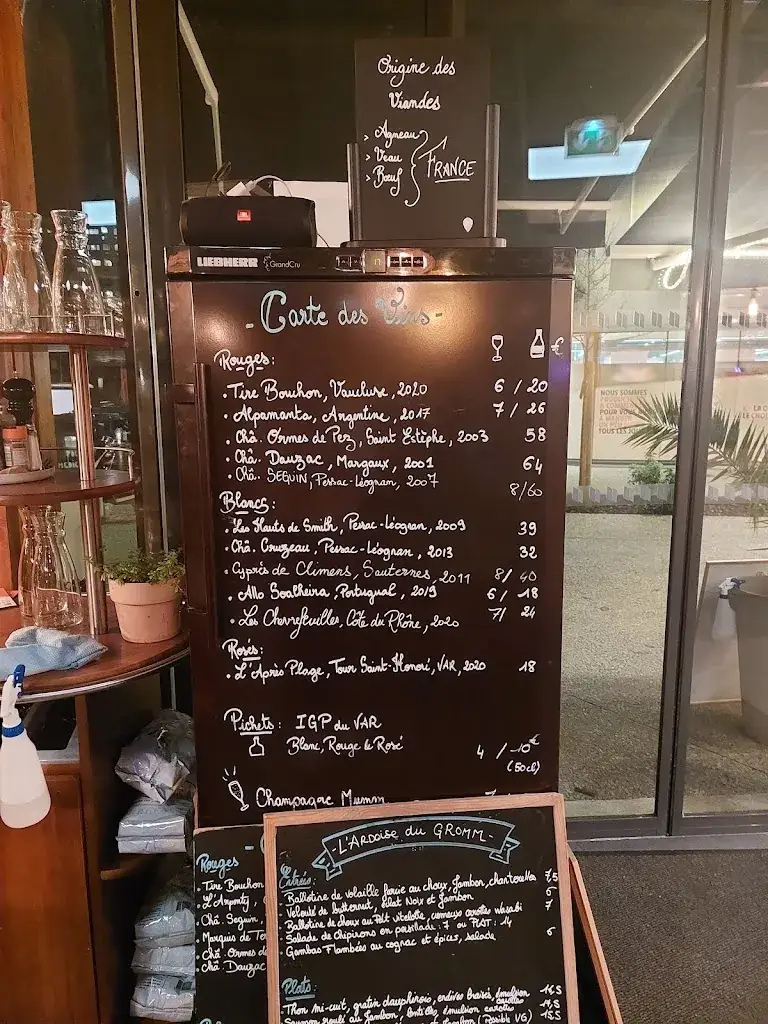 Origine des
Viandes
> Agneau
> Veau
> Bœuf
FRANCE
JBL
LIEBHERR GrandCru
- Carte des Vins -
€
Rouges:
• Tire Bouchon, Vaucluse, 2020 6 / 20
• Alpamanta, Argentine, 2017 7 / 26
• Châ. Ormes de Pez, Saint Estèphe, 2003 58
• Châ. Dauzac, Margaux, 2001 64
• Châ. SEGUIN, Pessac-Léognan, 2007 8/60
Blancs:
• Les Hauts de Smith, Pessac-Léognan, 2009 39
• Châ. Cruzeau, Pessac-Léognan, 2013 32
• Cyprès de Climens, Sauternes, 2011 8/ 40
• Allo Soalheiro, Portugual, 2019 6 / 18
• Les Chevrefeuilles, Côte du Rhône, 2020 7/ 24
Rosés:
• L'Après Plage, Tour Saint-Honoré, VAR, 2020 18
Pichets: IGP du VAR
Blanc, Rouge le Rosé 4 / 10€
(50cl)
Champagne Mumm
NOUS SOMMES
POUR VOUS
TOUS LES
Rouges
• Tire Bouchon
• L'Arpenty,
• Châ. Seguin,
Marquis de Te
• Châ. Ormes d
• Châ. Dauzac
- L'ARDOISE DU GROMM -
Entrées:
- Ballotine de volaille farcie au choux, Jambon, chanterelles 7,5
- Velouté de butternut, éclat Noix et Jambon 6
- Ballotine de choux au Poit vitelotte, carottes wasabi 7
- Salade de Chipirons en persillade: 7 ou PLAT: 14
- Gambas Flambées au cognac et épices, salade 6
Plats:
- Thon mi-cuit, gratin dauphinois, endives braisé, émulsion carottes 16,5
- Saumon roulé au Jambon, lentilles, émulsion carottes
(Possible VG) 15,5